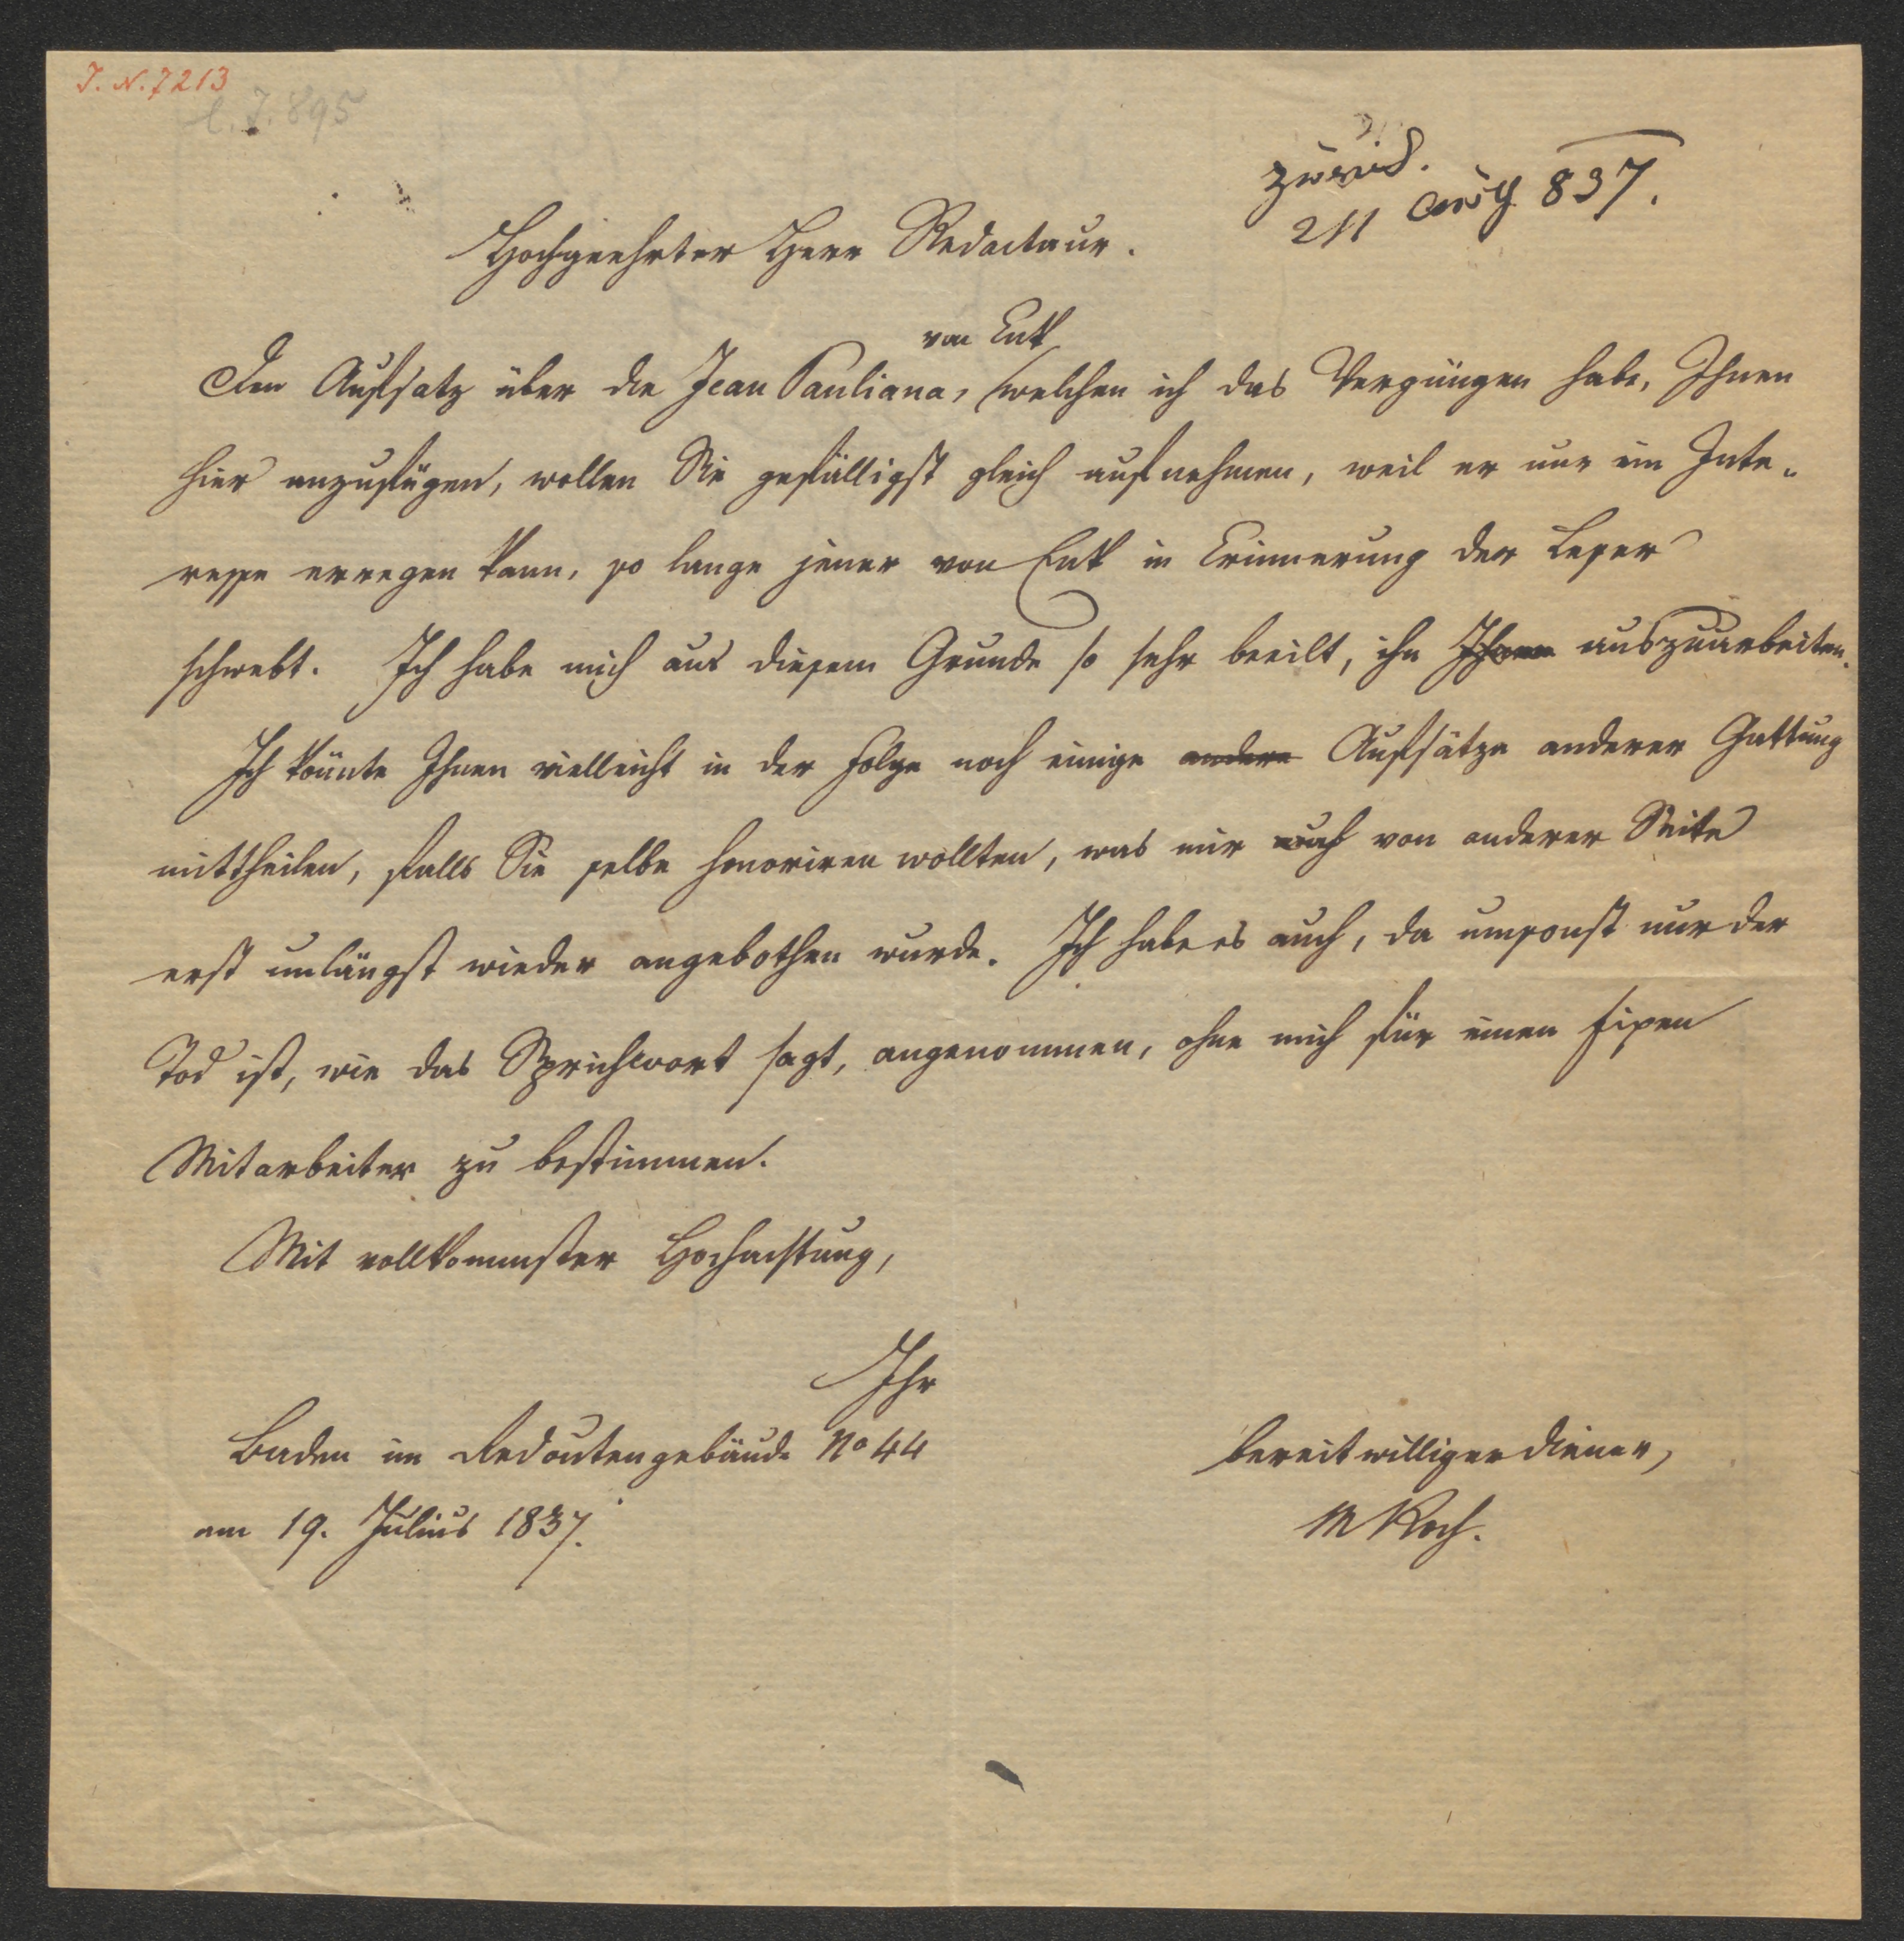 J. N. 7213
l. J. 895
zurück.
211 Aug 837.
Hochgeehrter Herr Redacteur.
von Enk
Den Aufsatz über die Jean Pauliana, welchen ich das Vergnügen habe, Ihnen
hier anzufügen, wollen Sie gefälligst gleich aufnehmen, weil er nur ein Inte-
resse erregen kann, so lange jener von Enk in Erinnerung der Leser
schwebt. Ich habe mich aus diesem Grunde so sehr beeilt, ihn Ihnen auszuarbeiten.
Ich könnte Ihnen vielleicht in der Folge noch einige andere Aufsätze anderer Gattung
mittheilen, falls Sie selbe honoriren wollten, was mir auch von anderer Seite
erst unlängst wieder angebothen wurde. Ich habe es auch, da umsonst nur der
Tod ist, wie das Sprichwort sagt, angenommen, ohne mich für einen fixen
Mitarbeiter zu bestimmen.
Mit vollkommenster Hochachtung,
Ihr
Baden im Redoutengebäude No 44
bereitwilliger Diener,
am 19. Julius 1837.
M Koch.